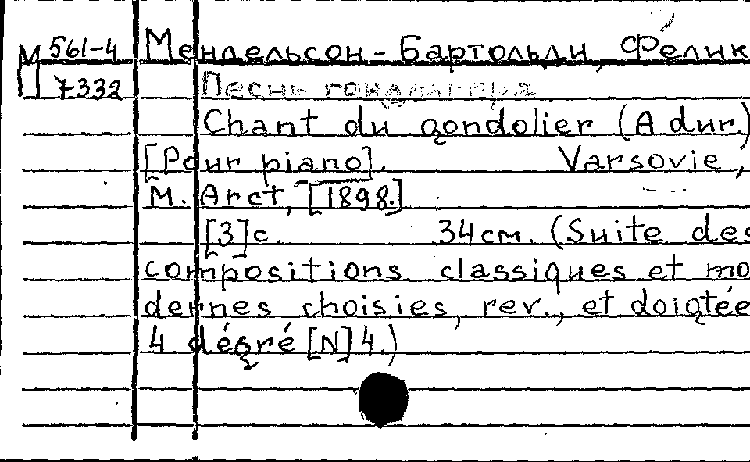 М 561-4 Мендельсон-Бартольди, Феликс
7332 Песнь гондольера
Chant du gondolier (A dur.)
[Pour piano]. Varsovie,
M. Arct, [1898.]
[3]c. 34 cm. (Suite des
compositions classiques et mo
dernes choisies, rev., et doigtée
4 dégré [N] 4.)